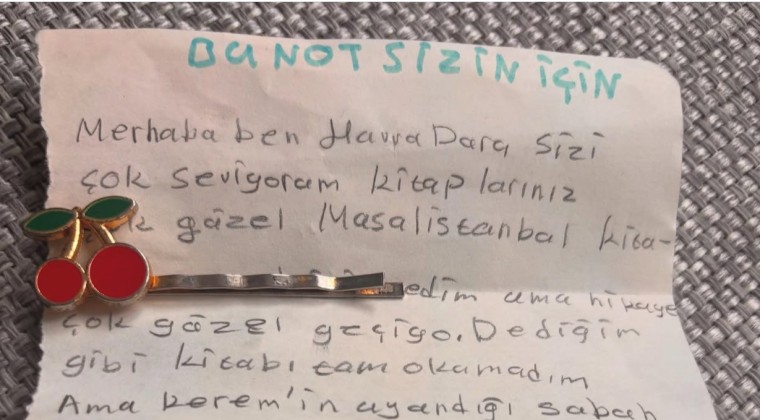 BU NOT SİZİN İÇİN
Merhaba ben Havva Dara sizi
çok seviyorum kitap larınız
güzel Masalistanbul kita-
edim ama hikaye
çok güzel geçiyo. Dediğim
gibi kitabı tam okumadım
Ama kerem'in uyandığı sabah